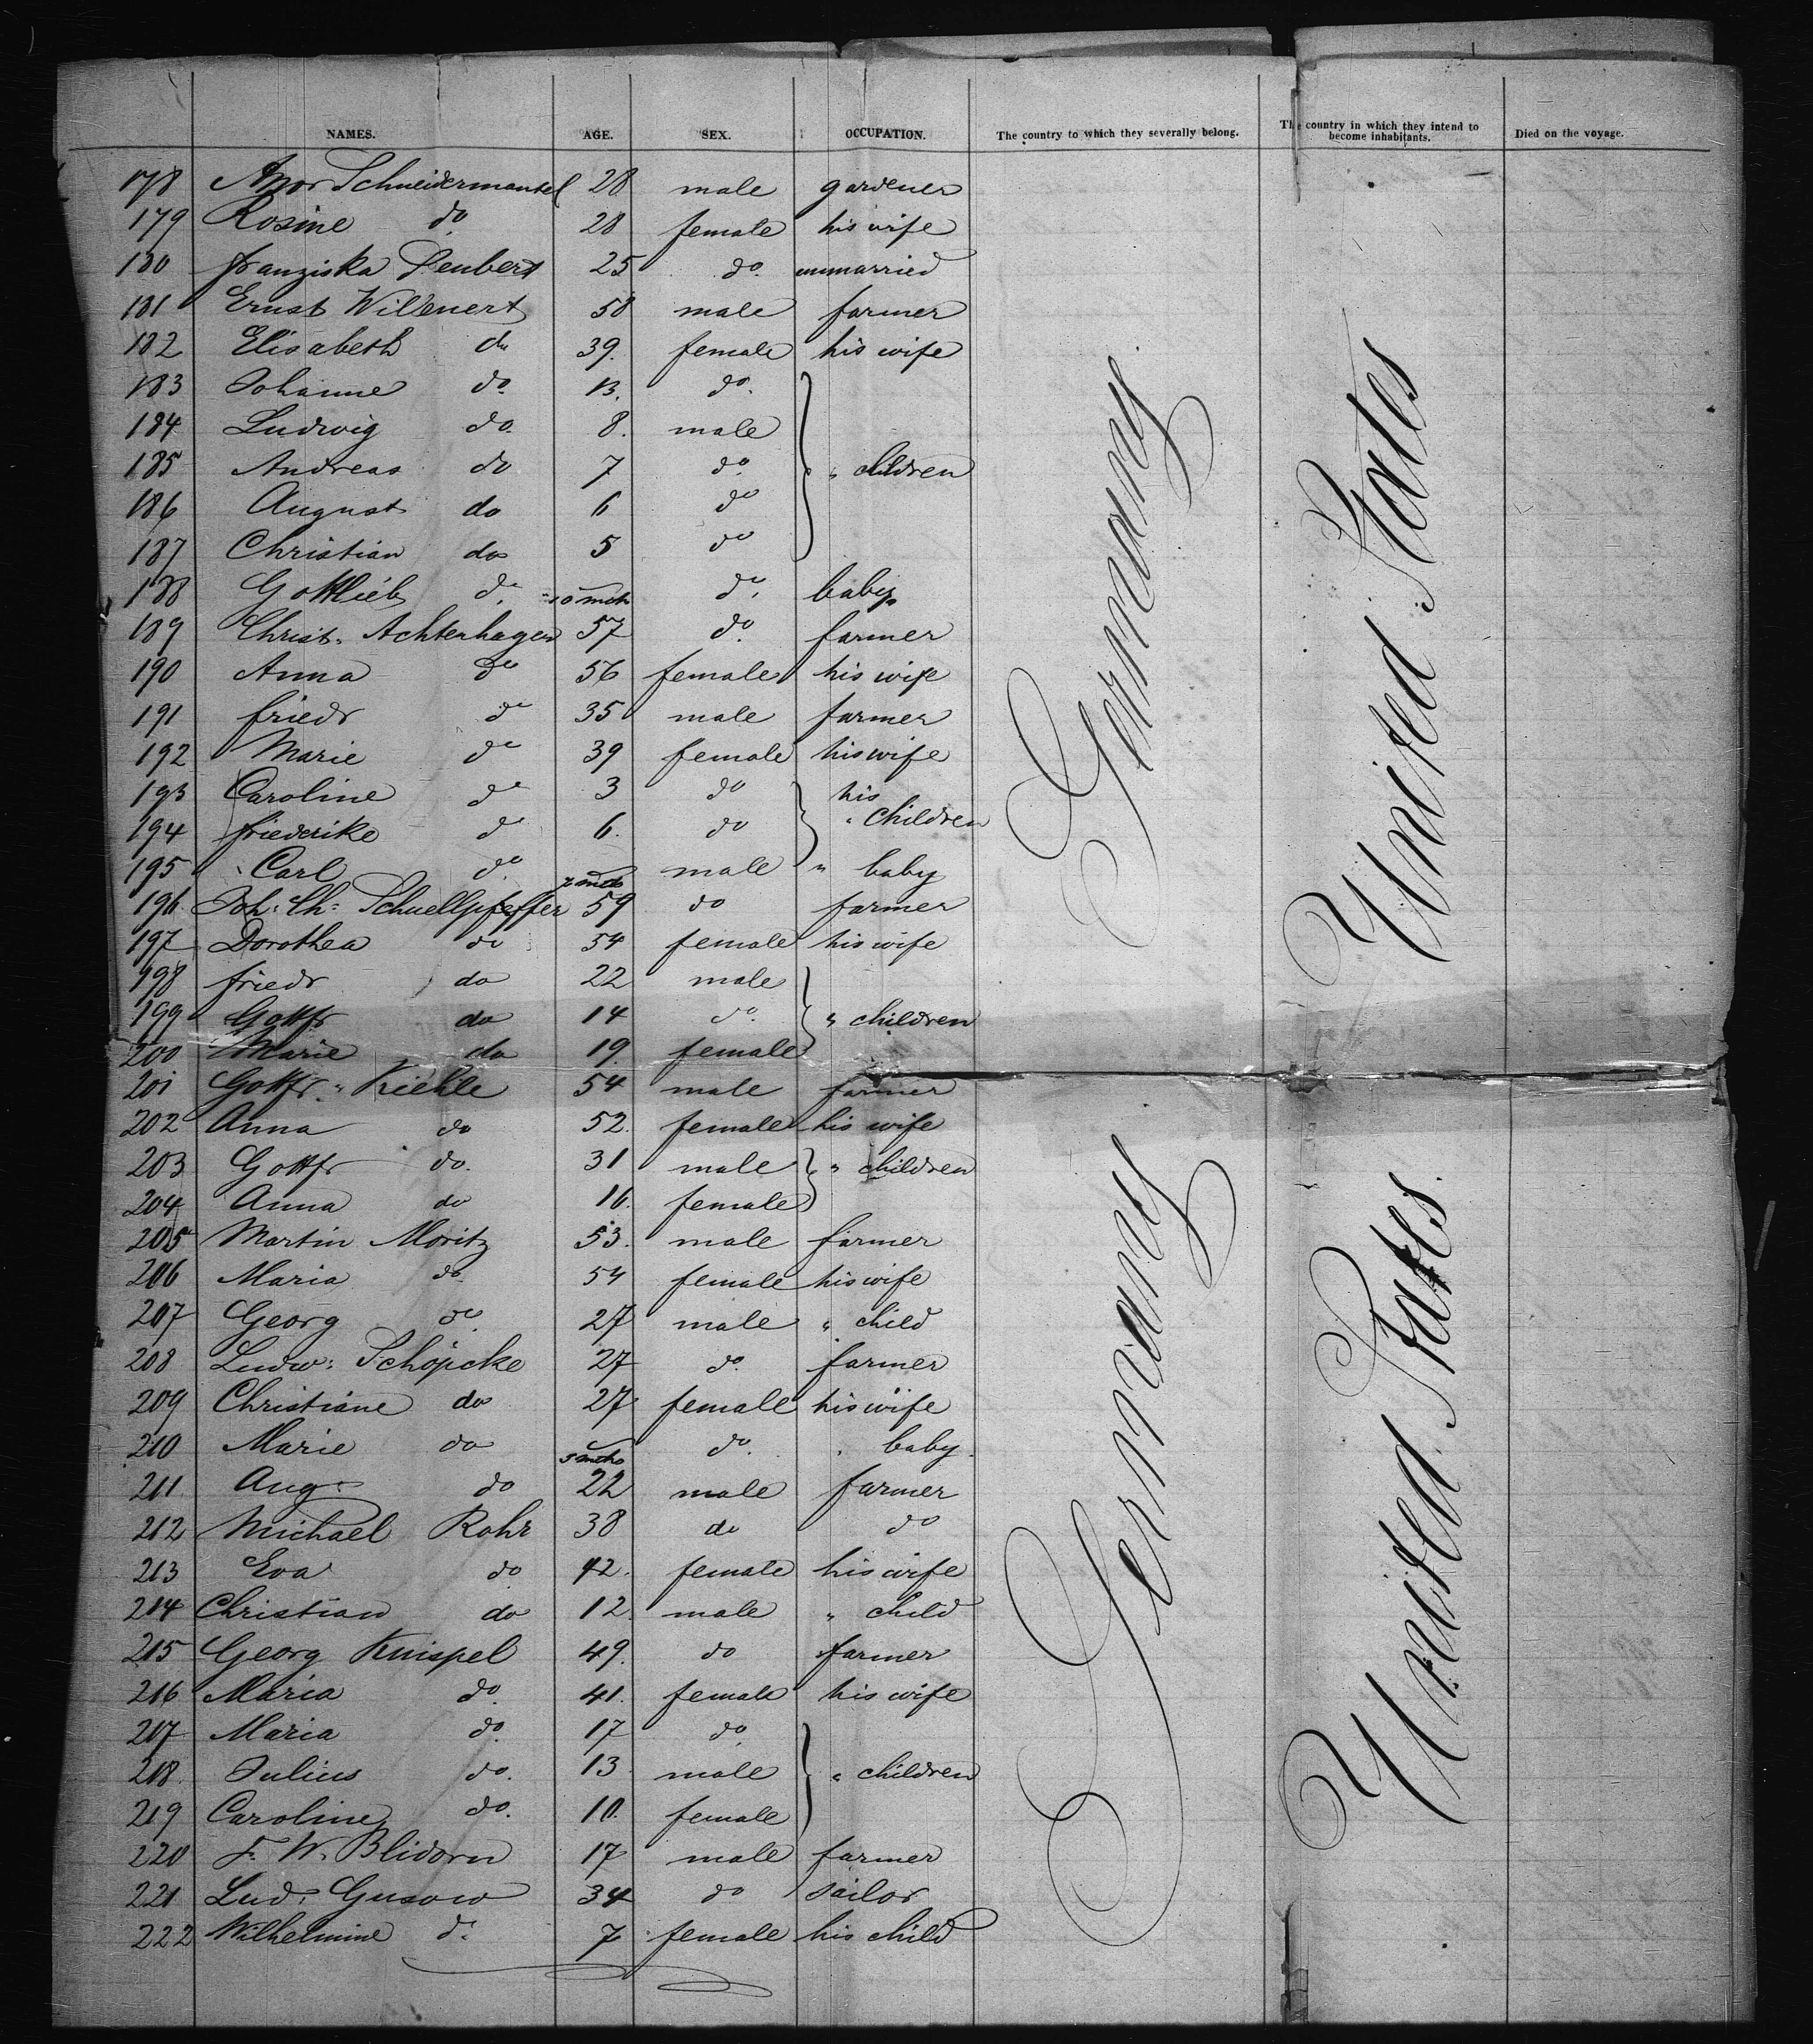 NAMES. AGE. SEX. OCCUPATION. The country to which they severally belong. The country in which they intend to become inhabitants. Died on the voyage.
178 Schneidermantel 28 male gardener
179 Rosine do. 28 female his wife
180 Franziska Seubert 25 do. unmarried
181 Ernst Willenert 58 male farmer
182 Elisabeth do 39. female his wife
183 Johanne do. 13. do.
184 Ludwig do. 8. male
185 Andreas do 7 do. " children
186 August do 6 do
187 Christian do 5 do
188 Gottlieb do. 10 mth do. baby
189 Christ. Achterhagen 57 do. farmer
190 Anna do 56 female his wife
191 friedr do 35 male farmer
192 Marie do 39 female his wife
193 Caroline do 3 do his
194 friederike do 6. do " children
195 Carl do. 7 mth male " baby
196 Joh: Ch: Schnellpfeffer 59 do farmer
197 Dorothea do 54 female his wife
198 friedr do 22 male
199 Gottfr do 14 do. " children
200 Marie do 19. female
201 Gottfr. Kiehle 54 male farmer
202 Anna do 52. female his wife
203 Gottfr do. 31 male " children
204 Anna do 16. female
205 Martin Moritz 53. male farmer
206 Maria do. 54 female his wife
207 Georg do. 27 male " child
208 Ludw: Schöpcke 27 do. farmer
209 Christiane do 27 female his wife
210 Marie do 5 mths do. " baby.
211 Aug. do 22 male farmer
212 Michael Rohr 38 do do
213 Eva do 42. female his wife
214 Christian do 12. male " child
215 Georg Knispel 49. do farmer
216 Maria do. 41. female his wife
217 Maria do. 17 do.
218. Julius do. 13 male " children
219 Caroline do. 10. female
220 F. W. Blidorn 17 male farmer
221 Lud. Gusow 34 do sailor
222 Wilhelmine do. 7 female his child
Germany
United States
Germany
United States.